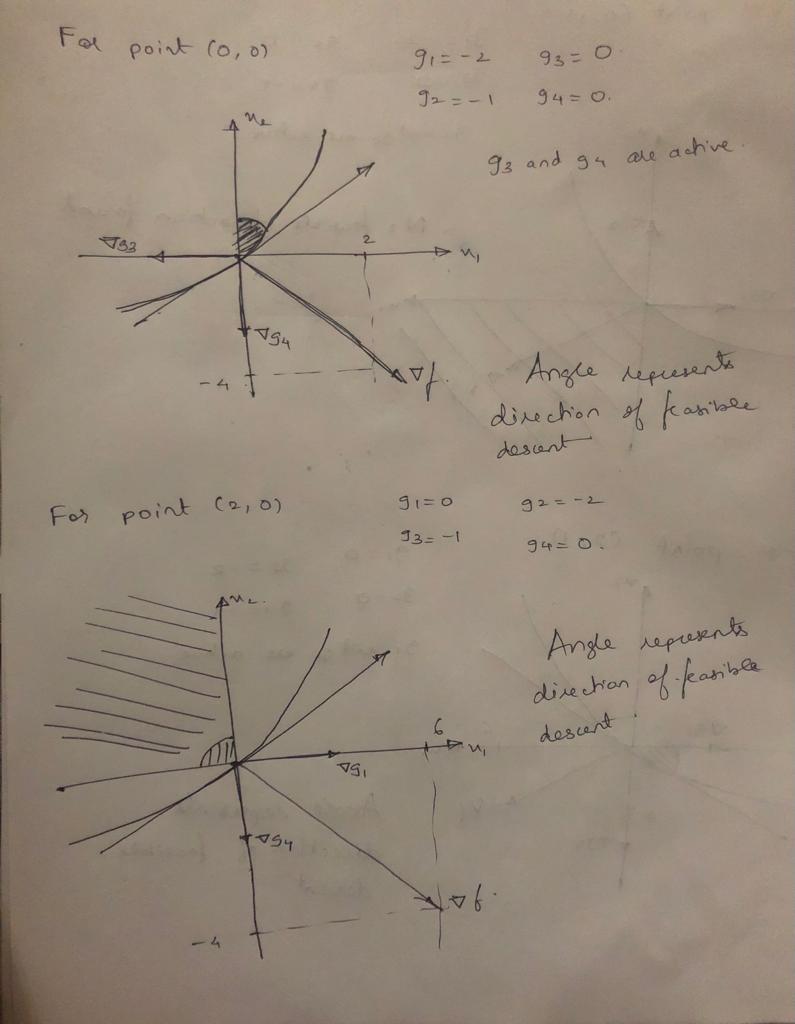 For point (0,0)
g1 = -2 g3 = 0
g2 = -1 g4 = 0.
g3 and g4 are active.
x2
∇g3
2
x1
∇g4
-4
∇f.
Angle represents
direction of feasible
descent
For point (2,0)
g1 = 0 g2 = -2
g3 = -1 g4 = 0.
x2
Angle represents
direction of feasible
descent
6
x1
∇g1
∇g4
∇f.
-4